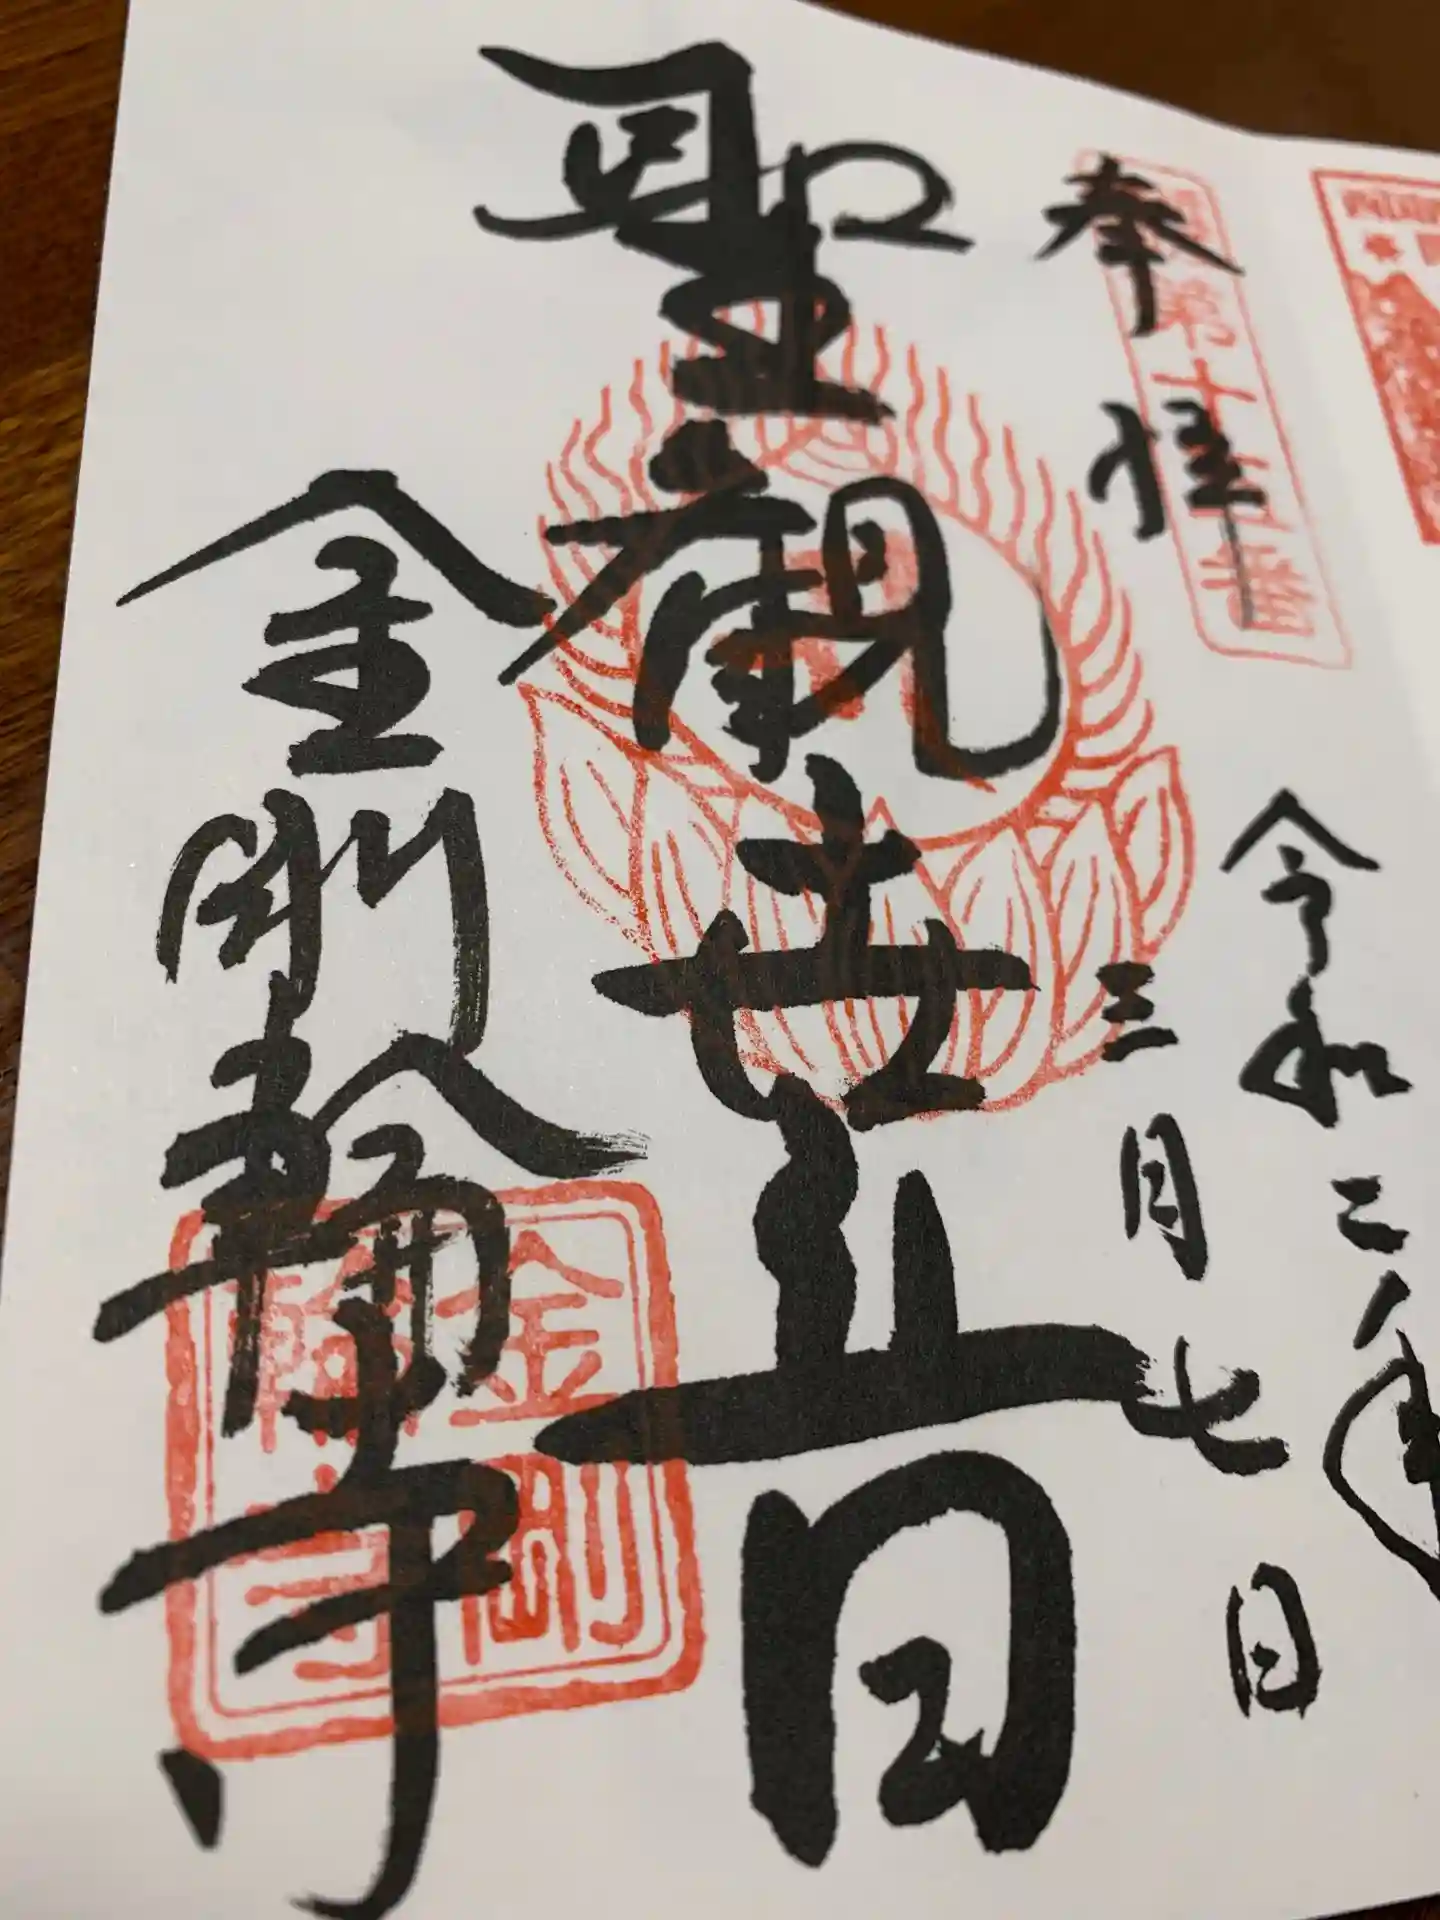 奉拝
令和二年
三月七日
聖観世音
金剛輪寺
第十五番
金剛
輪寺